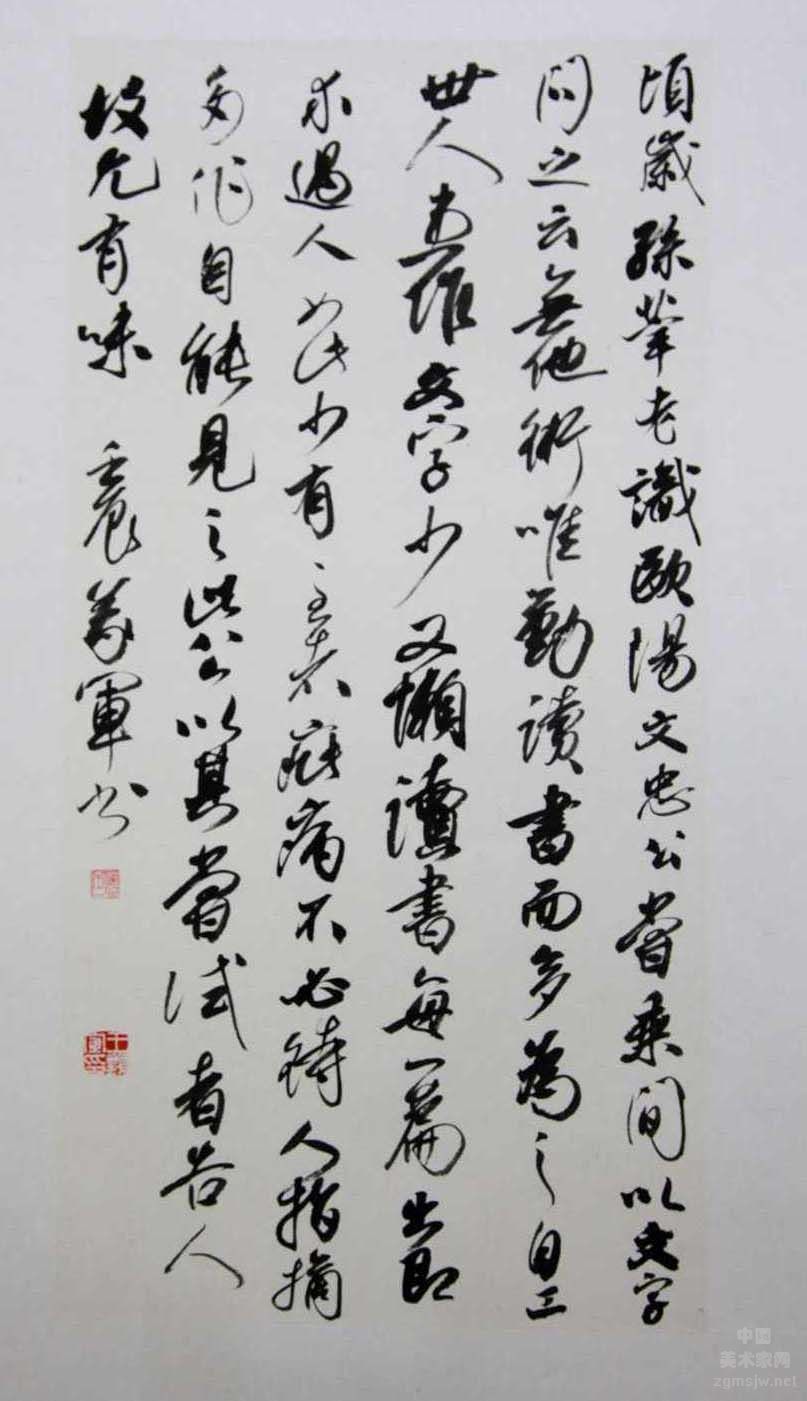 頃歲孫莘老識歐陽文忠公嘗乘間以文字
問之云無他術唯勤讀書而多為之自工
世人患作文字少又懶讀書每一篇出即
求過人如此少有至者疵病不必待人指摘
多作自能見之此公以其嘗試者告人
故尤有味 壬辰義軍書
王義軍印
中国
美术家网
zgmsjw.net